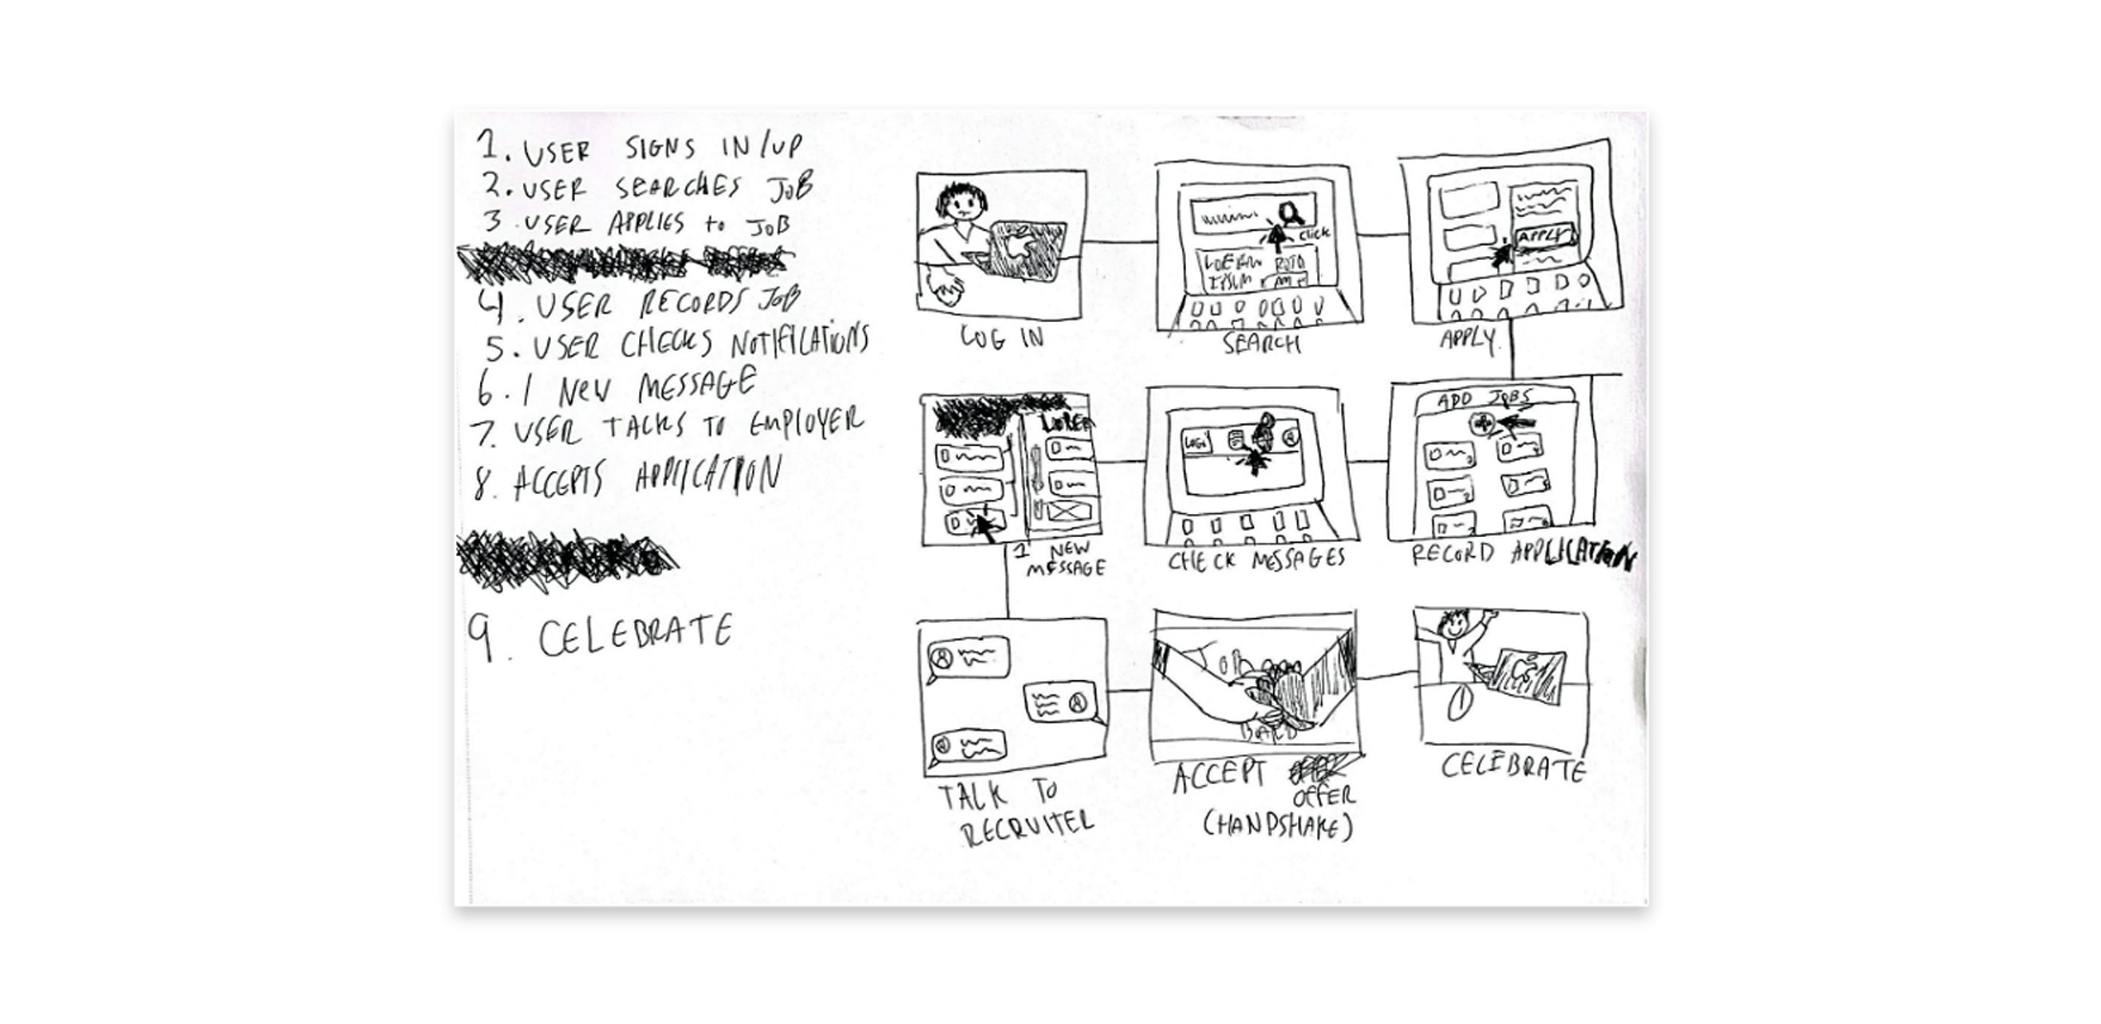 1. USER SIGNS IN/UP
2. USER SEARCHES JOB
3. USER APPLIES to JOB
4. USER RECORDS JOB
5. USER CHECKS NOTIFICATIONS
6. 1 NEW MESSAGE
7. USER TALKS TO EMPLOYER
8. ACCEPTS APPLICATION
9. CELEBRATE
LOG IN
click
SEARCH
APPLY
APPLY
LOREM
1 NEW
MESSAGE
LOGO
CHECK MESSAGES
ADD JOBS
RECORD APPLICATION
TALK TO
RECRUITER
ACCEPT
OFFER
(HANDSHAKE)
CELEBRATE